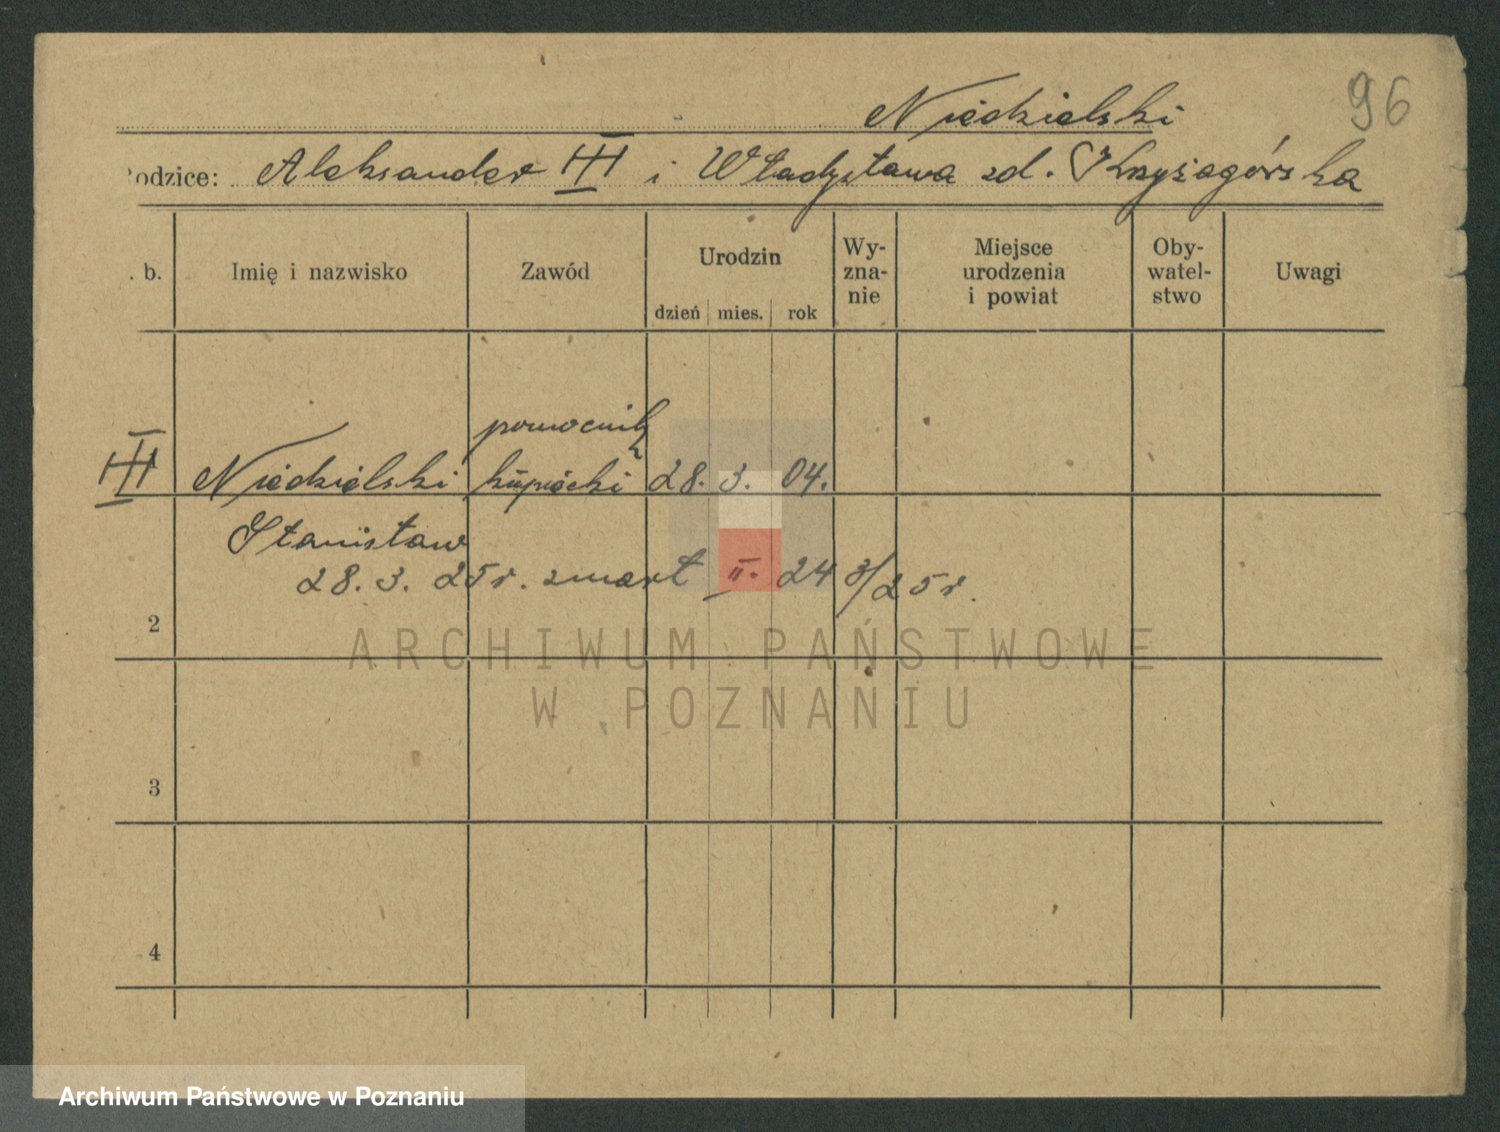 Niedzielski 96
Rodzice: Aleksander i Władysława zd.
. b. Imię i nazwisko Zawód Urodzin dzień mies. rok Wy-zna-nie Miejsce urodzenia i powiat Oby-watel-stwo Uwagi
pomocnik
Niedzielski kupiecki 28. 3. 04.
Stanisław
28. 3. 25 r. zmarł II. 24 3/25 r.
2
ARCHIWUM PAŃSTWOWE
W POZNANIU
3
4
Archiwum Państwowe w Poznaniu